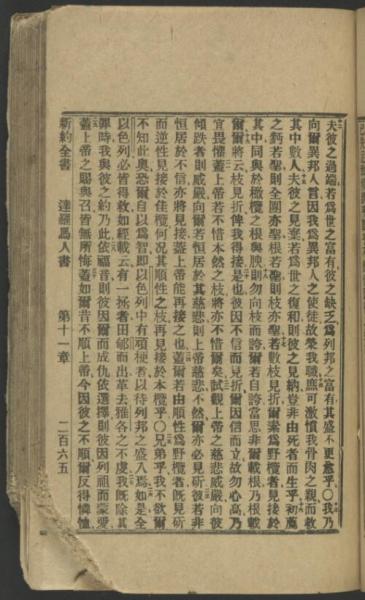 夫彼之過端若爲世之富有彼之缺乏爲列邦之富有其盛不更愈乎〇我乃
向爾異邦人言因我爲異邦人之使徒故榮我職庶可激憤我骨肉之親而救
其中數人夫彼之見棄若爲世之復和則彼之見納豈非由死者而生乎初薦
之麪若聖則全團亦聖根若聖則枝亦聖若數枝見折爾素爲野欖者見接於
其中同與於橄欖之根與腴則勿向枝而誇爾若自誇當思非爾載根乃根載
爾爾將云枝見折俾我得接是也彼因不信而見折爾因信而立故勿心高乃
宜畏懼蓋上帝若不惜本然之枝將亦不惜爾矣試觀上帝之慈悲威嚴向彼
傾跌者則威嚴向爾若恒居於其慈悲則上帝慈悲不然爾亦必見斫彼若非
恒居於不信亦將見接蓋上帝能再接之也蓋爾若由順性爲野欖者旣見斫
而逆性見接於佳欖何况其順性之枝再見接於本欖乎〇兄弟乎我不欲爾
不知此奧恐爾自以爲智卽以色列中有頑梗者以待列邦之盛入焉如是全
以色列必皆得救如經載云有一拯者由郇而出革去雅各之不虔我旣除其
罪時我與彼之約乃此依福音則彼因爾而成仇依選擇則彼因列祖而蒙愛
蓋上帝之賜與召皆無所悔蓋如爾昔不順上帝今因彼之不順爾反得憐恤
新約全書　達羅馬人書　第十一章　二百六五